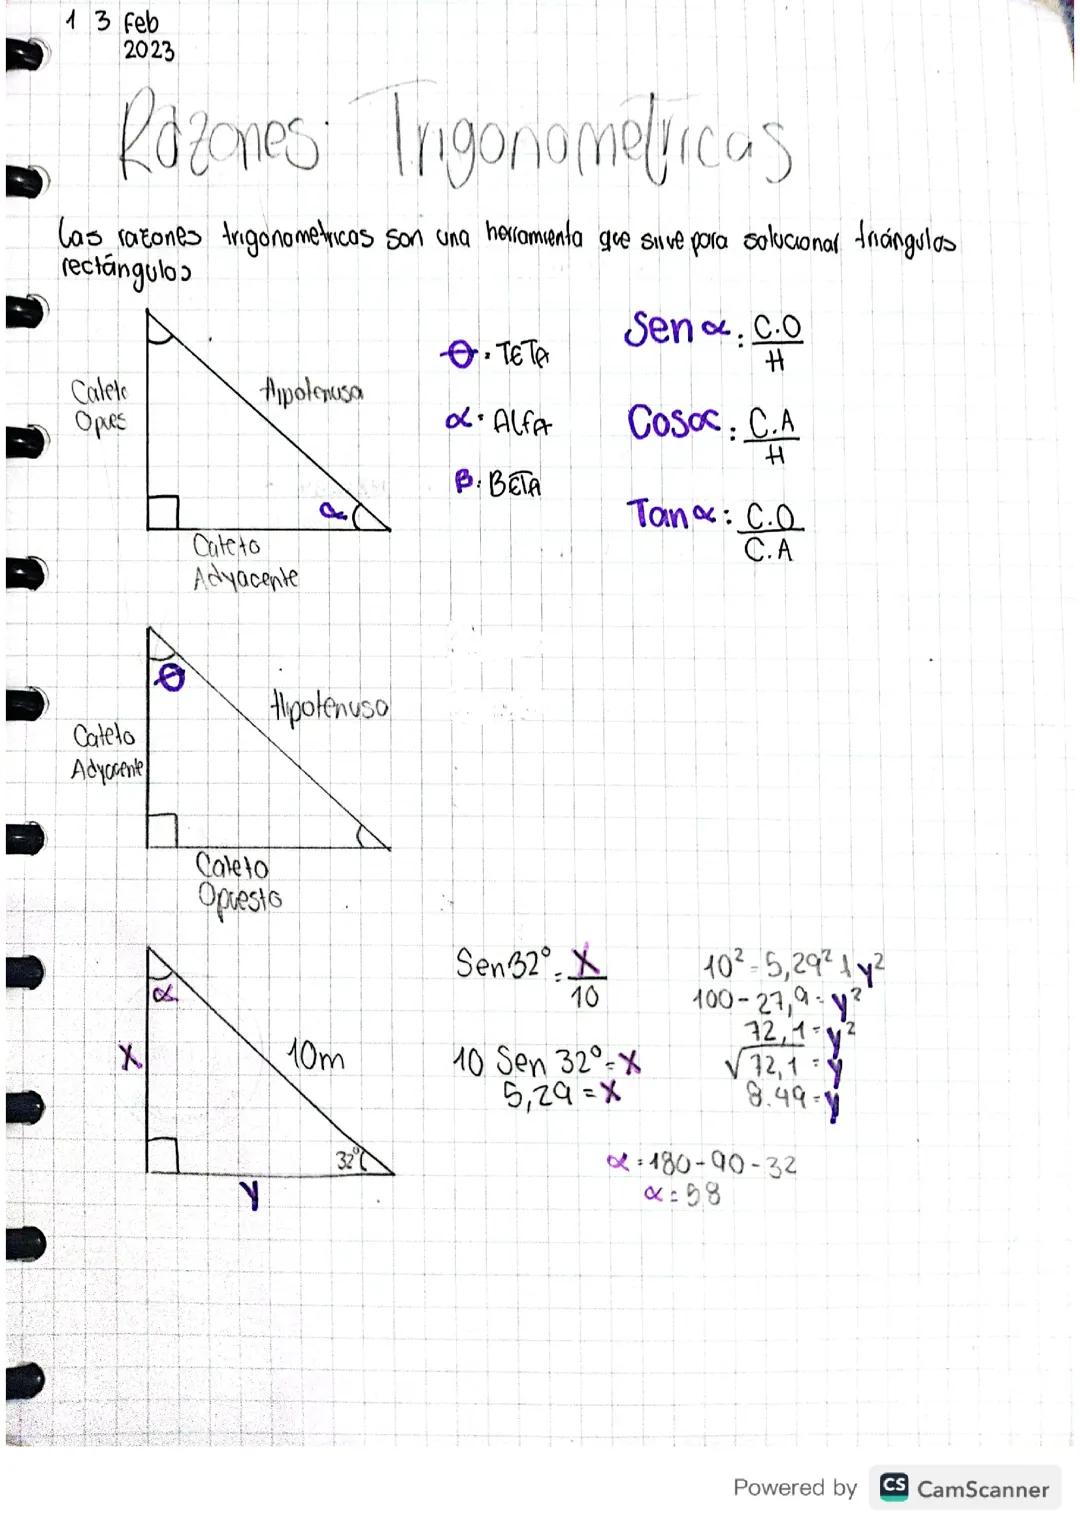 1 3 Feb
2023
Razones Trigonometricas
Las razones trigonometricas son una herramienta que sirve para solucionar triángulos
rectángulos
Cateto
Opues
Hipotenusa
α
Cateto
Adyacente
θ: TETA
α: ALFA
β: BETA
Sen α: C.O
H
Cos α: C.A
H
Tan α: C.O
C.A
θ
Hipotenusa
Cateto
Adyacente
Cateto
Opuesto
α
x
10m
32°
y
Sen 32° = x
10
10 Sen 32° = x
5,29 = x
10² = 5,29² + y²
100 - 27,9 = y²
72,1 = y²
√72,1 = y
8.49 = y
α = 180-90-32
α = 58
Powered by CS CamScanner